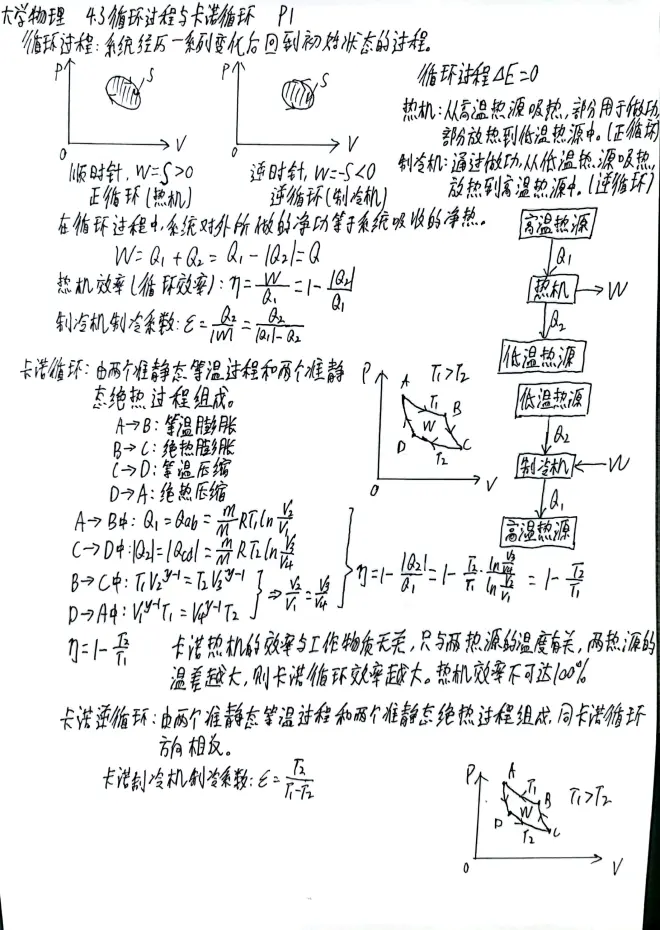 大学物理 4.3循环过程与卡诺循环 P1
循环过程:系统经历一系列变化后回到初始状态的过程。
P S
O V
P S
O V
循环过程ΔE=0
热机:从高温热源吸热,部分用于做功,
部分放热到低温热源中。(正循环)
制冷机:通过做功,从低温热源吸热,
放热到高温热源中。(逆循环)
顺时针,W=S>0
正循环(热机)
逆时针,W=-S<0
逆循环(制冷机)
在循环过程中,系统对外所做的净功等于系统吸收的净热。
W=Q₁+Q₂=Q₁-|Q₂|=Q
热机效率(循环效率):η=W/Q₁=1-|Q₂|/Q₁
制冷机制冷系数:ε=Q₂/|W|=Q₂/(|Q₁|-Q₂)
高温热源
Q₁
热机 → W
Q₂
低温热源
低温热源
Q₂
制冷机 ← W
Q₁
高温热源
卡诺循环:由两个准静态等温过程和两个准静
态绝热过程组成。
A→B:等温膨胀
B→C:绝热膨胀
C→D:等温压缩
D→A:绝热压缩
P A T₁>T₂
T₁ B
W
D T₂ C
O V
A→B中:Q₁=Qab=m/M RT₁ln V₂/V₁
C→D中:|Q₂|=|Qcd|=m/M RT₂ln V₃/V₄
B→C中:T₁V₂^γ-1=T₂V₃^γ-1
D→A中:V₁^γ-1T₁=V₄^γ-1T₂
⇒V₂/V₁=V₃/V₄
η=1-|Q₂|/Q₁=1-T₂/T₁·(ln V₃/V₄)/(ln V₂/V₁)=1-T₂/T₁
η=1-T₂/T₁ 卡诺热机的效率与工作物质无关,只与两热源的温度有关,两热源的
温差越大,则卡诺循环效率越大。热机效率不可达100%
卡诺逆循环:由两个准静态等温过程和两个准静态绝热过程组成,同卡诺循环
方向相反。
卡诺制冷机制冷系数:ε=T₂/(T₁-T₂)
P A T₁
B T₁>T₂
W
D T₂ C
O V